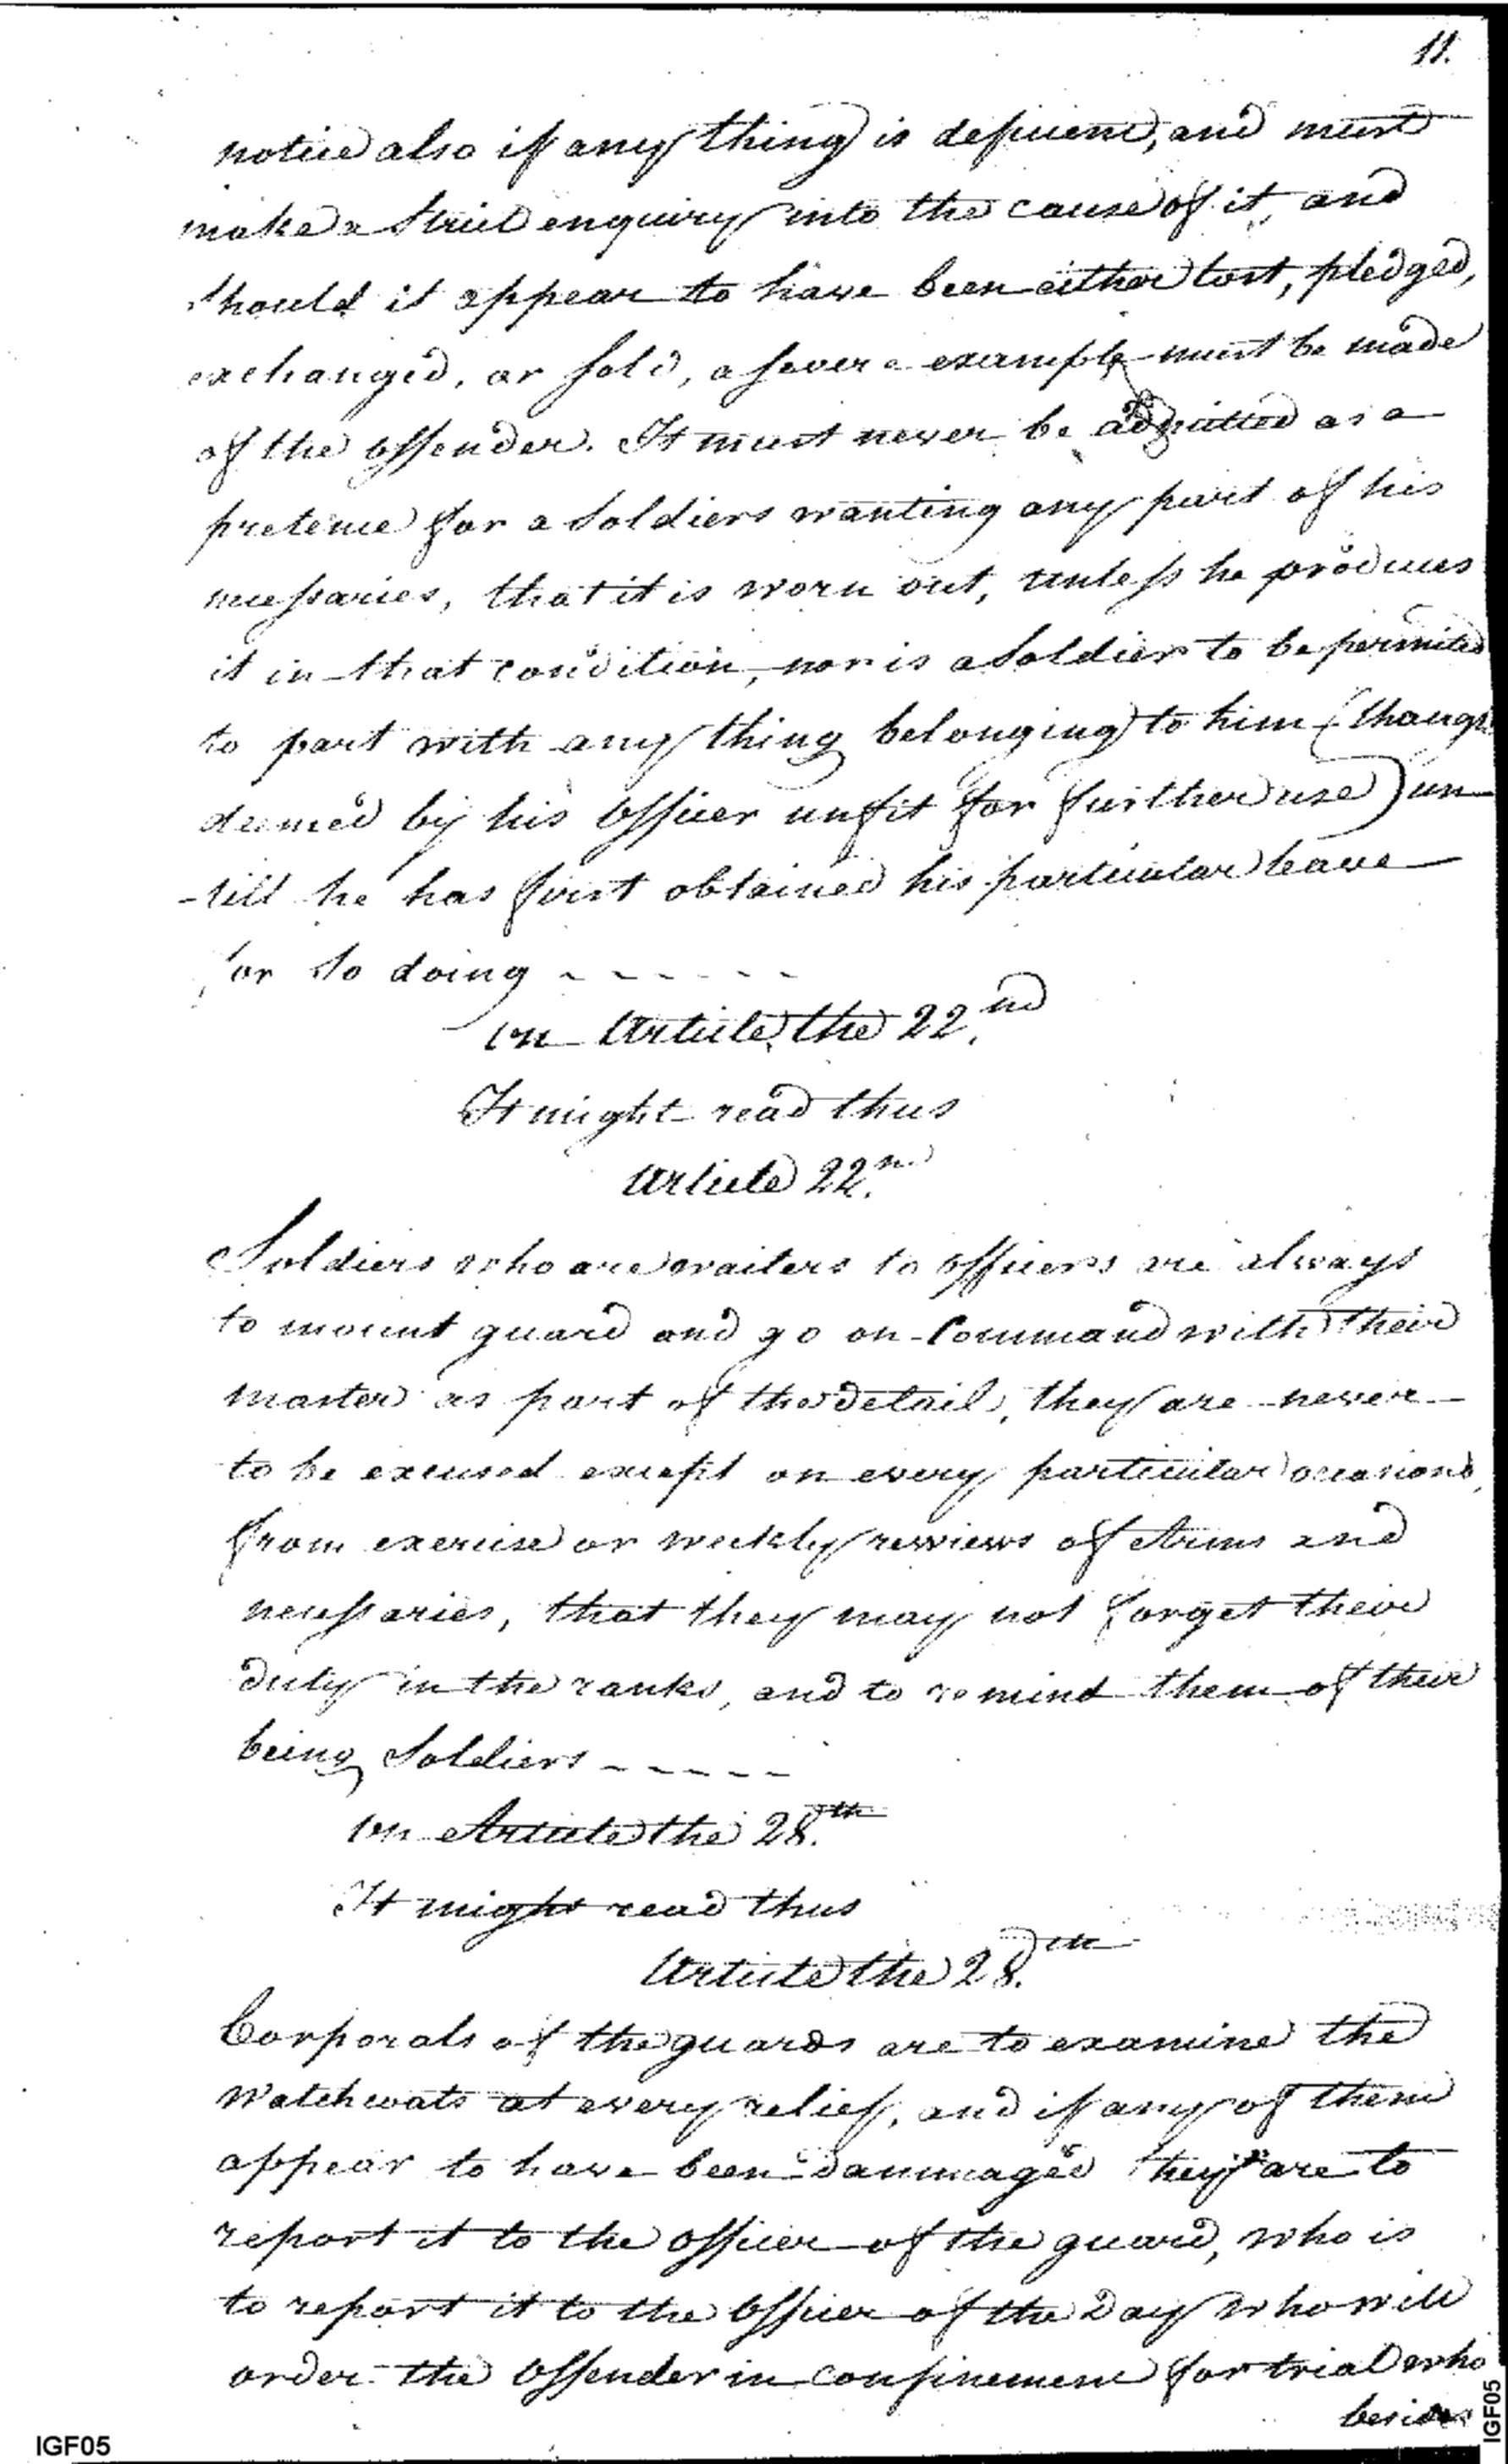 11.
notice also if any thing is deficient, and must
make a strict enquiry into the cause of it, and
should it appear to have been either lost, pledged,
exchanged, or sold, a severe example must be made
of the offender. It must never be admitted as a
pretence for a Soldiers wanting any part of his
necessaries, that it is worn out, unless he produces
it in that condition, nor is a Soldier to be permited
to part with any thing belonging to him (though
deemed by his Officer unfit for further use) un-
-till he has first obtained his particular leave
for so doing - - - - - -
On Article the 22.nd
It might read thus
Article 22.n
Soldiers who are waiters to Officers are always
to mount guard and go on Command with their
master as part of the detail, they are never
to be excused except on every particular occasions,
from exercise or weekly reviews of Arms and
necessaries, that they may not forget their
duty in the ranks, and to remind them of their
being Soldiers - - - - -
On Article the 28.th
It might read thus
Article the 28.th
Corporals of the guards are to examine the
Watchcoats at every relief, and if any of them
appear to have been dammaged they are to
report it to the Officer of the guard, who is
to report it to the Officer of the Day who will
order the Offender in Confinement for trial who
besides
IGF05
IGF05